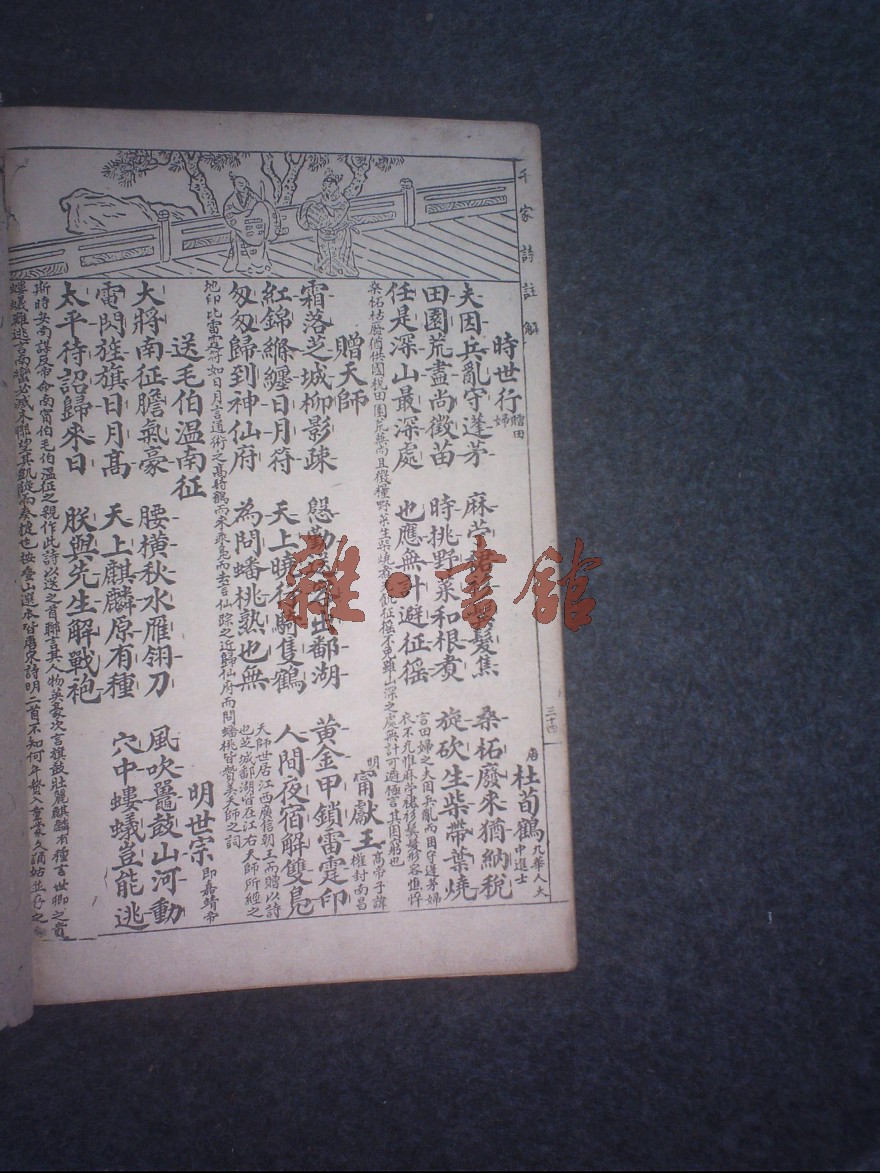 千家詩註解
三十四
時世行 贈田婦
唐 杜荀鶴 九華人大中進士
夫因兵亂守蓬茅 麻苧裙衫鬢髮焦 桑柘廢來猶納稅
田園荒盡尚徵苗 時挑野菜和根煮 旋砍生柴帶葉燒
任是深山最深處 也應無計避征徭
言田婦之夫因兵亂而困守蓬茅婦
衣不充雅麻苧裙衫鬢髮形容憔悴
桑柘枯廢猶供國稅田園荒蕪尚且徵糧野菜生柴燒煮
征徭不免雖山深之處無計可避極言其困窮也
贈天師
明 甯獻王 高帝子諱權封南昌
霜落芝城柳影疎 慇勤送客出鄱湖 黃金甲鎖雷霆印
紅錦縧纏日月符 天上曉行騎隻鶴 人間夜宿解雙鳧
匆匆歸到神仙府 為問蟠桃熟也無
天師世居江西廣信朝王而贈以詩
也芝城鄱湖皆在江右天師所經之
地印比雷霆符如日月言道術之高騎鶴而來乘鳧而去言仙踪之近歸仙府而問蟠桃皆贊美天師之詞
送毛伯溫南征
明世宗 即嘉靖帝
大將南征膽氣豪 腰橫秋水雁翎刀 風吹鼉鼓山河動
電閃旌旗日月高 天上麒麟原有種 穴中螻蟻豈能逃
太平待詔歸來日 朕與先生解戰袍
斯時安南謀反帝命南甯伯毛伯溫征之親作此詩以送之首聯言其人物英豪次言旗鼓壯麗麒麟有種言世卿之貴
螻蟻難逃言南蠻必滅末聯望其凱旋而奏捷也按疊山選本皆唐宋詩明二首不知何年贅入童蒙久誦姑並存之
雜·書館